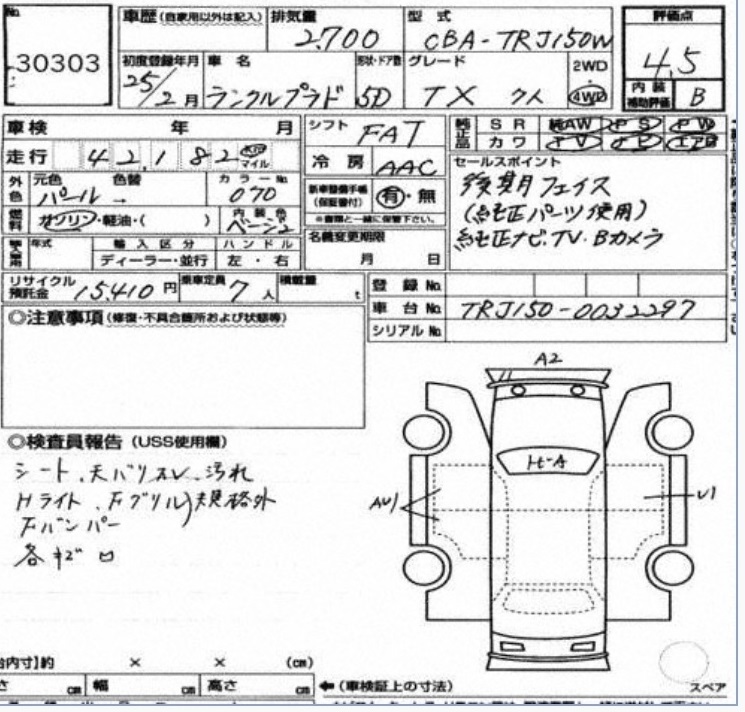 No.
30303
車歴 (自家用以外は記入)
排気量 2.700
型式 CBA-TRJ150W
評価点 4.5
内装補助評価 B
初度登録年月 25/2月
車名 ランクルプラド
形状・ドア数 5D
グレード TX
2WD・4WD
車検 年 月
シフト FAT
純正品 SR 純AW PS PW
カワ TV ナビ エアB
走行 42,182 km マイル
冷房 AAC
セールスポイント
後期フェイス
(純正パーツ使用)
純正ナビ.TV.Bカメラ
外色 元色 パール 色替 → カラーNo. 070
新車整備手帳 (保証書付) 有・無
※書類と一緒に保管下さい。
燃料 ガソリン・軽油・( )
内装色 ベージュ
名義変更期限
月 日
輸入車用 年式 輸入区分 ハンドル
ディーラー・並行 左・右
リサイクル預託金 15410 円 乗車定員 7人 積載量 t
登録No.
車台No. TRJ150-0032297
シリアルNo.
◎注意事項 (修復・不具合箇所および状態等)
A2
◎検査員報告 (USS使用欄)
シート、天バリ スレ、汚れ
Hライト、Fグリル)規格外
Fバンパー
各キズ凹
H-A
AU1
U1
台内寸】約 × × (cm)
さ cm 幅 cm 高さ cm
←(車検証上の寸法)
スペア